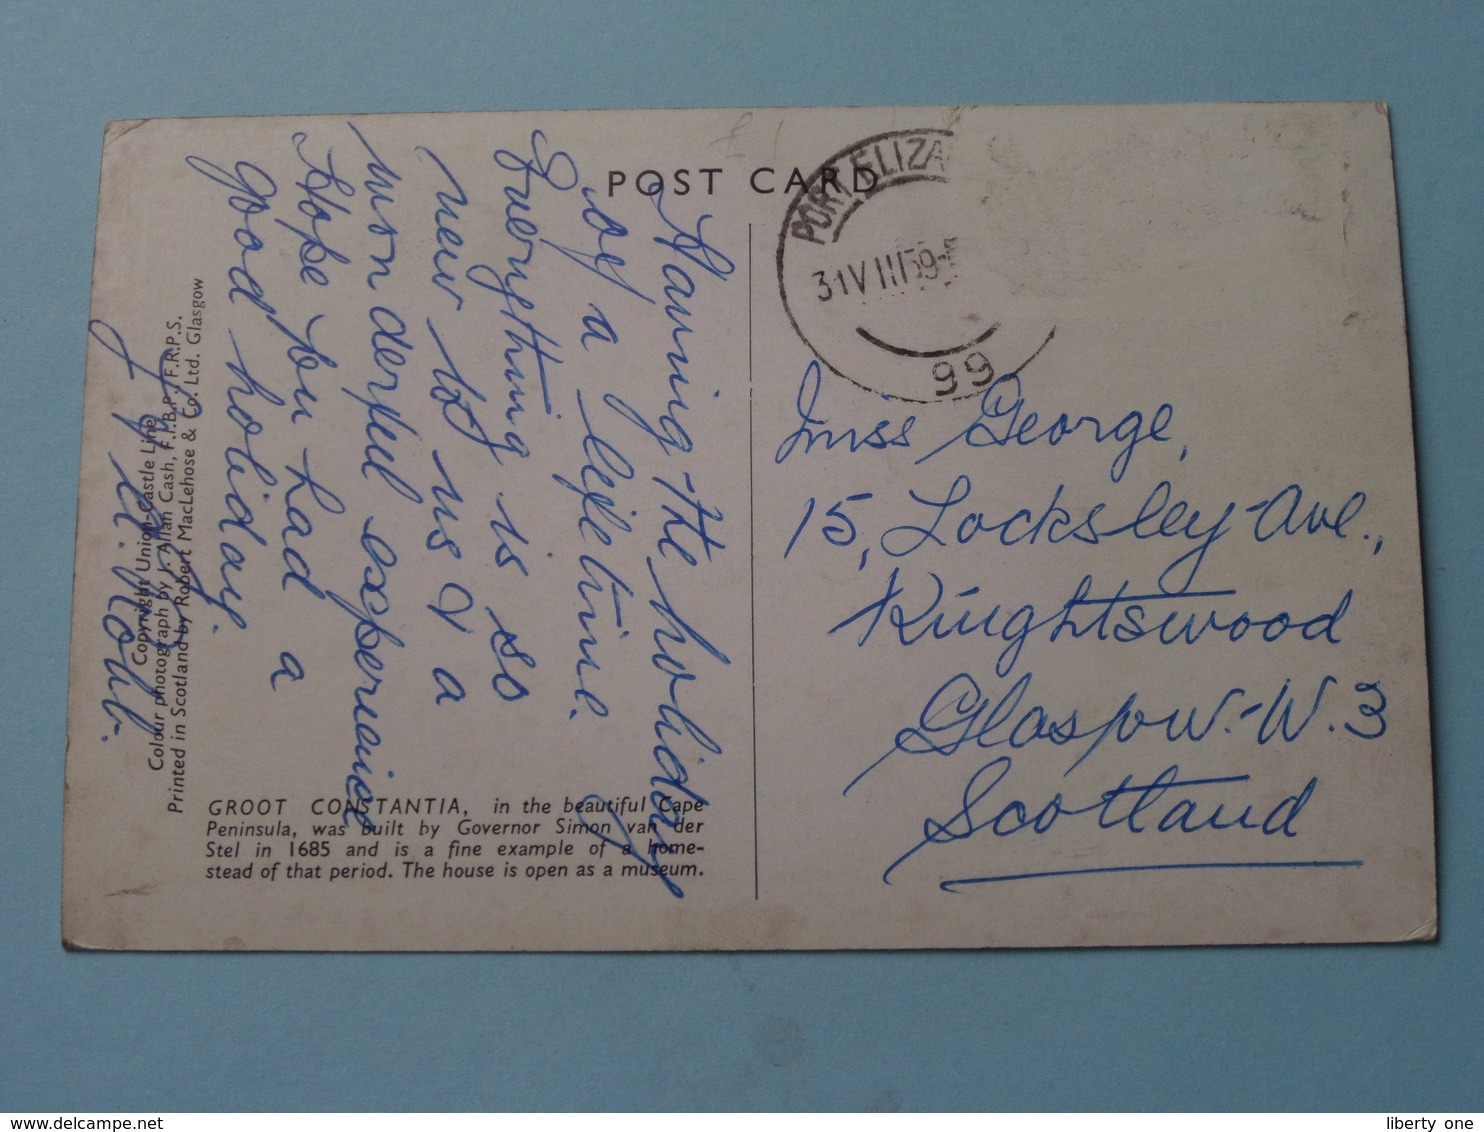 POST CARD
PORT ELIZA
31 VIII 59
99
Having the holiday
of a lifetime.
Everything is so
new to us & a
wonderful experience
Hope you had a
good holiday.
Miss George,
15, Locksley Ave.,
Knightswood
Glasgow. W. 3
Scotland
Copyright Union-Castle Line
Colour photograph by J. Allan Cash, F.I.B.P., F.R.P.S.
Printed in Scotland by Robert MacLehose & Co. Ltd. Glasgow
GROOT CONSTANTIA, in the beautiful Cape
Peninsula, was built by Governor Simon van der
Stel in 1685 and is a fine example of a home-
stead of that period. The house is open as a museum.
www.delcampe.net
liberty one